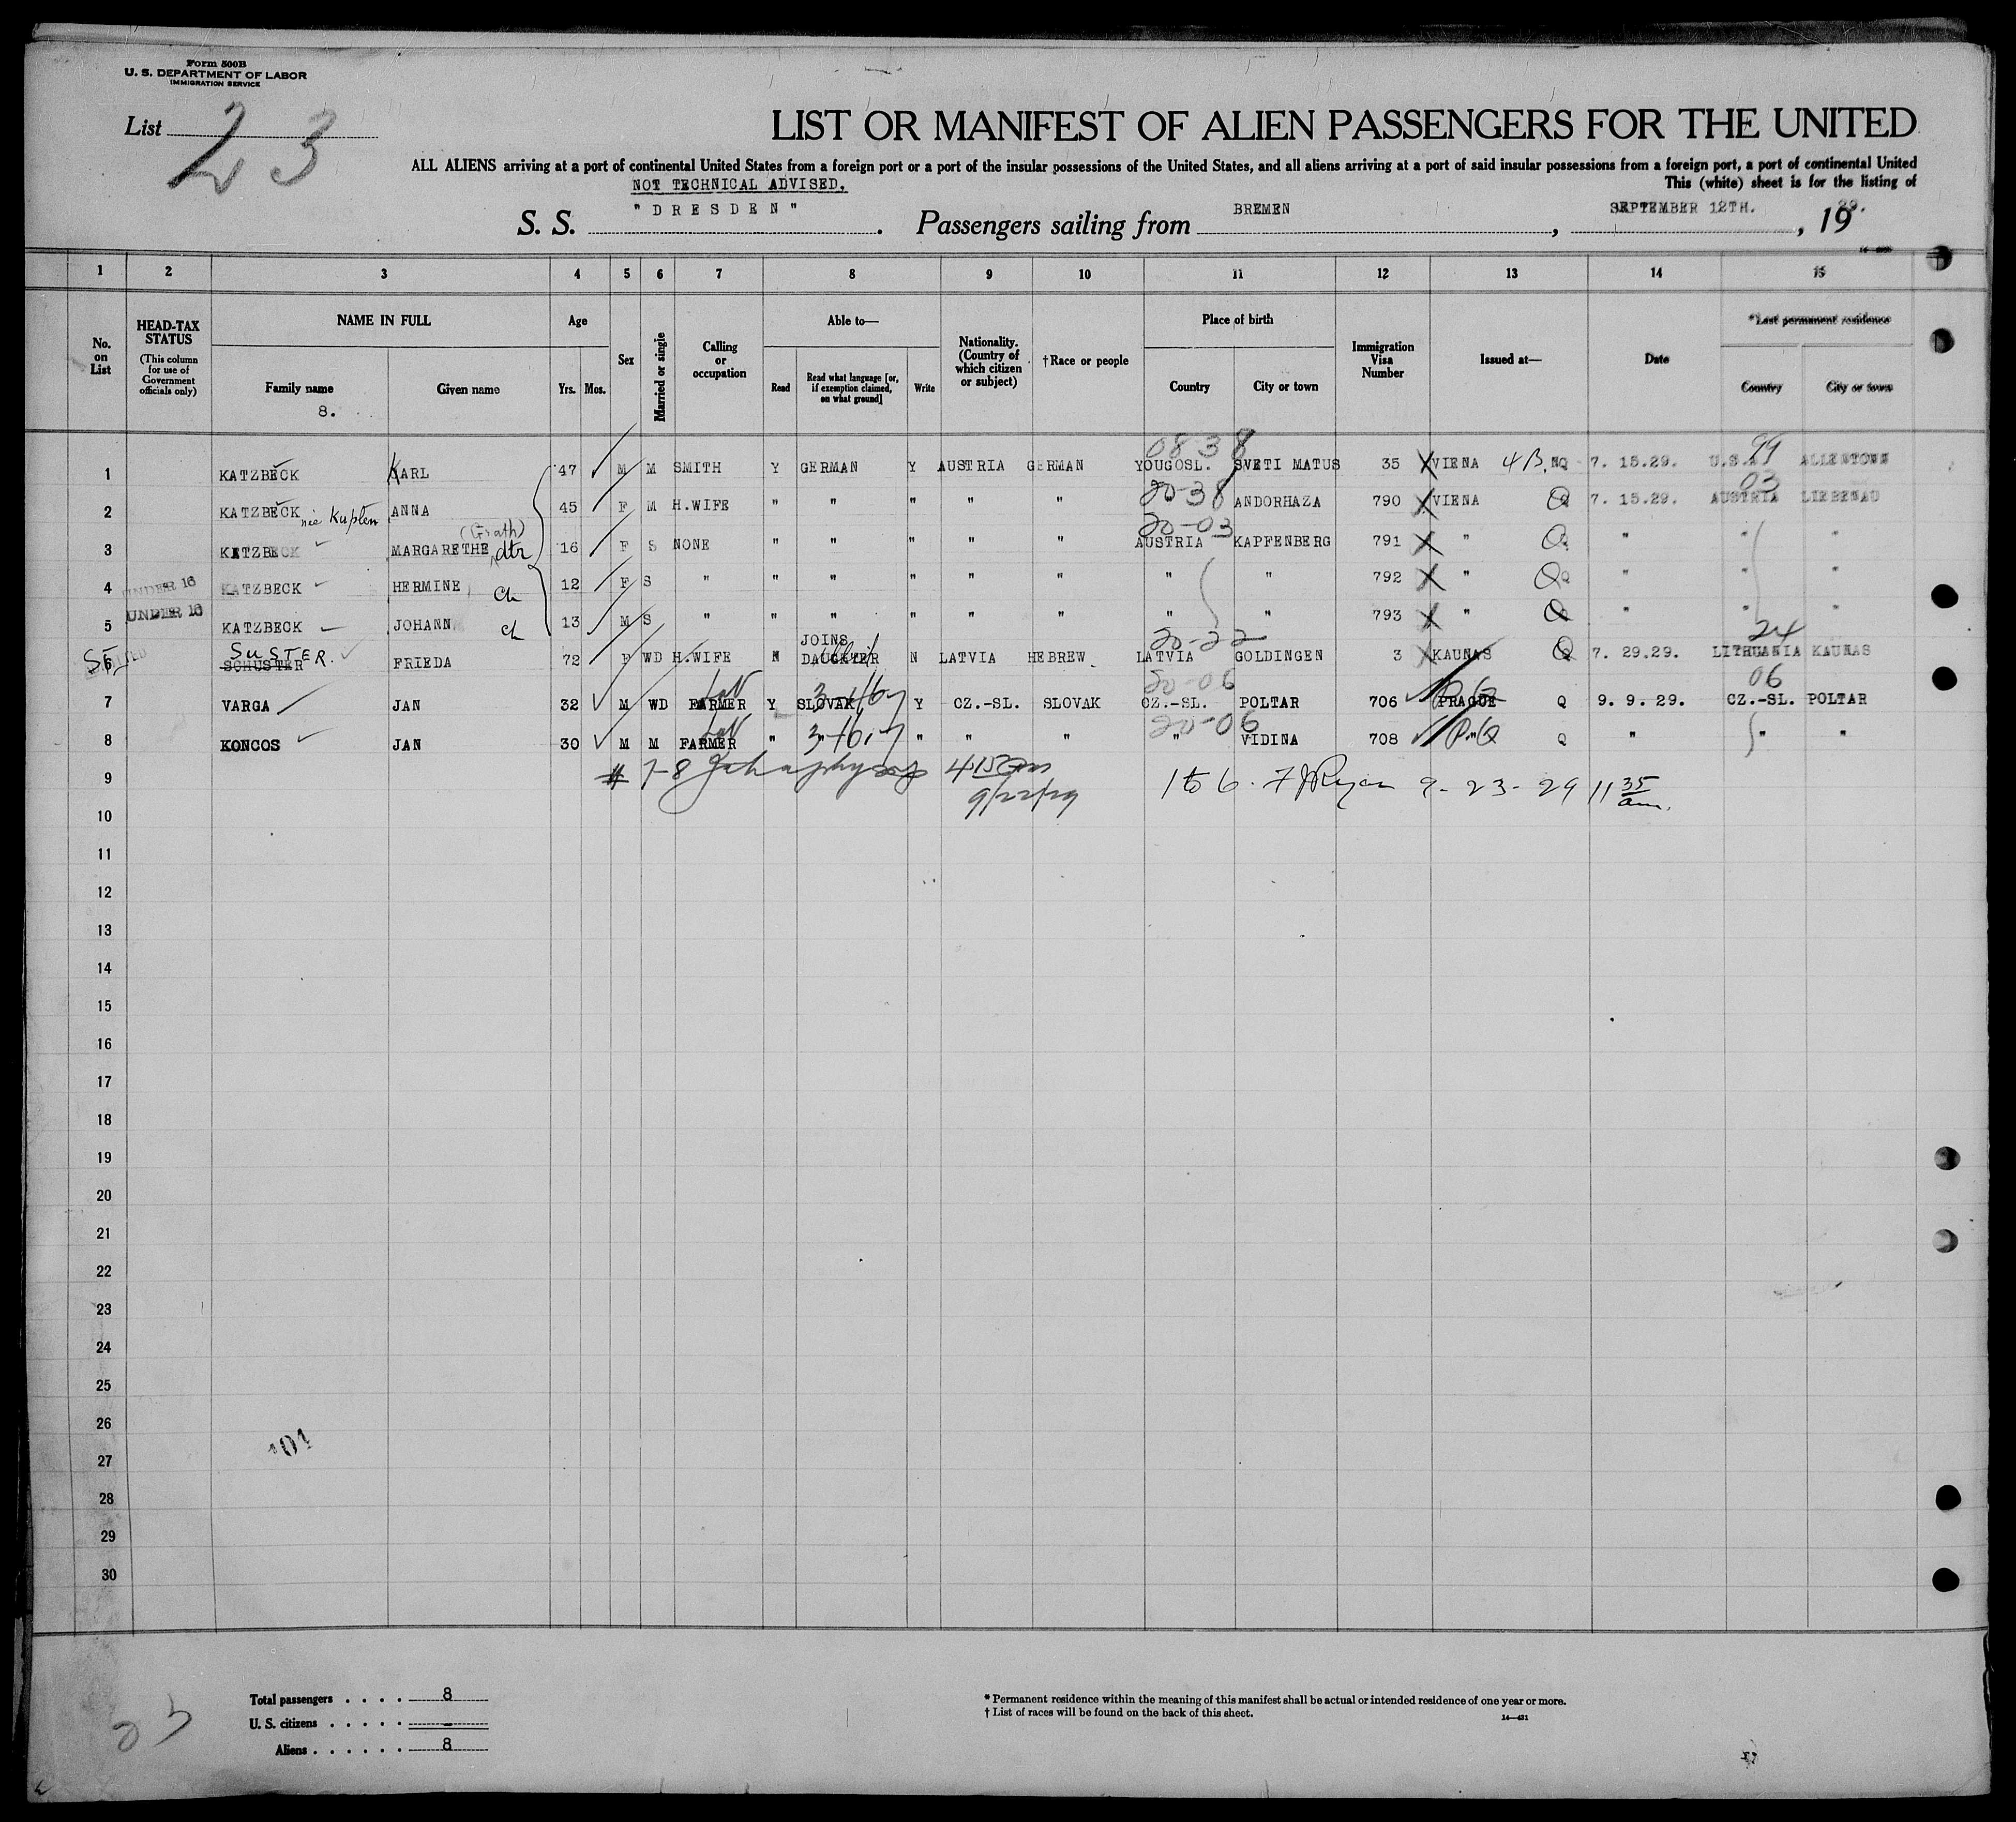 Form 500B
U. S. DEPARTMENT OF LABOR
IMMIGRATION SERVICE
List 23
LIST OR MANIFEST OF ALIEN PASSENGERS FOR THE UNITED
ALL ALIENS arriving at a port of continental United States from a foreign port or a port of the insular possessions of the United States, and all aliens arriving at a port of said insular possessions from a foreign port, a port of continental United
NOT TECHNICAL ADVISED. This (white) sheet is for the listing of
S. S. "DRESDEN". Passengers sailing from BREMEN, SEPTEMBER 12TH., 1929.
1 2 3 4 5 6 7 8 9 10 11 12 13 14 15
No. on List
HEAD-TAX STATUS (This column for use of Government officials only)
NAME IN FULL
Family name
8.
Given name
Age
Yrs. Mos.
Sex
Married or single
Calling or occupation
Able to—
Read
Read what language [or, if exemption claimed, on what ground]
Write
Nationality. (Country of which citizen or subject)
†Race or people
Place of birth
Country
City or town
Immigration Visa Number
Issued at—
Date
*Last permanent residence
Country
City or town
0838 99
1 KATZBECK KARL 47 M M SMITH Y GERMAN Y AUSTRIA GERMAN YOUGOSL. SVETI MATUS 35 VIENA 4B. NQ 7. 15.29. U.S.A. ALLENTOWN
20-38 03
2 KATZBECK ANNA 45 F M H.WIFE " " " " " ANDORHAZA 790 VIENA Q 7. 15.29. AUSTRIA LIEBENAU
20-03
3 KATZBECK MARGARETHE dtr 16 F S NONE " " " " " AUSTRIA KAPFENBERG 791 " Q " " "
4 UNDER 16 KATZBECK HERMINE ch 12 F S " " " " " " " " 792 " Q " " "
5 UNDER 16 KATZBECK JOHANN ch 13 M S " " " " " " " " 793 " Q " " "
SUSTER. JOINS 20-22 24
6 SCHUSTER FRIEDA 72 F WD H.WIFE N DAUGHTER N LATVIA HEBREW LATVIA GOLDINGEN 3 KAUNAS Q 7. 29.29. LITHUANIA KAUNAS
Lab 20-06 06
7 VARGA JAN 32 M WD FARMER Y SLOVAK Y CZ.-SL. SLOVAK CZ.-SL. POLTAR 706 PRAGUE Q 9. 9. 29. CZ.-SL. POLTAR
Lab 20-06
8 KONCOS JAN 30 M M FARMER " " " " " " VIDINA 708 " Q " " "
9 7-8 415 pm 1 to 6. F J Ryan 9-23-29 11 35 am.
9/22/29
10
11
12
13
14
15
16
17
18
19
20
21
22
23
24
25
26
101
27
28
29
30
Total passengers . . . . 8
U. S. citizens . . . . . –
Aliens . . . . . . 8
23
* Permanent residence within the meaning of this manifest shall be actual or intended residence of one year or more.
† List of races will be found on the back of this sheet.
14—431